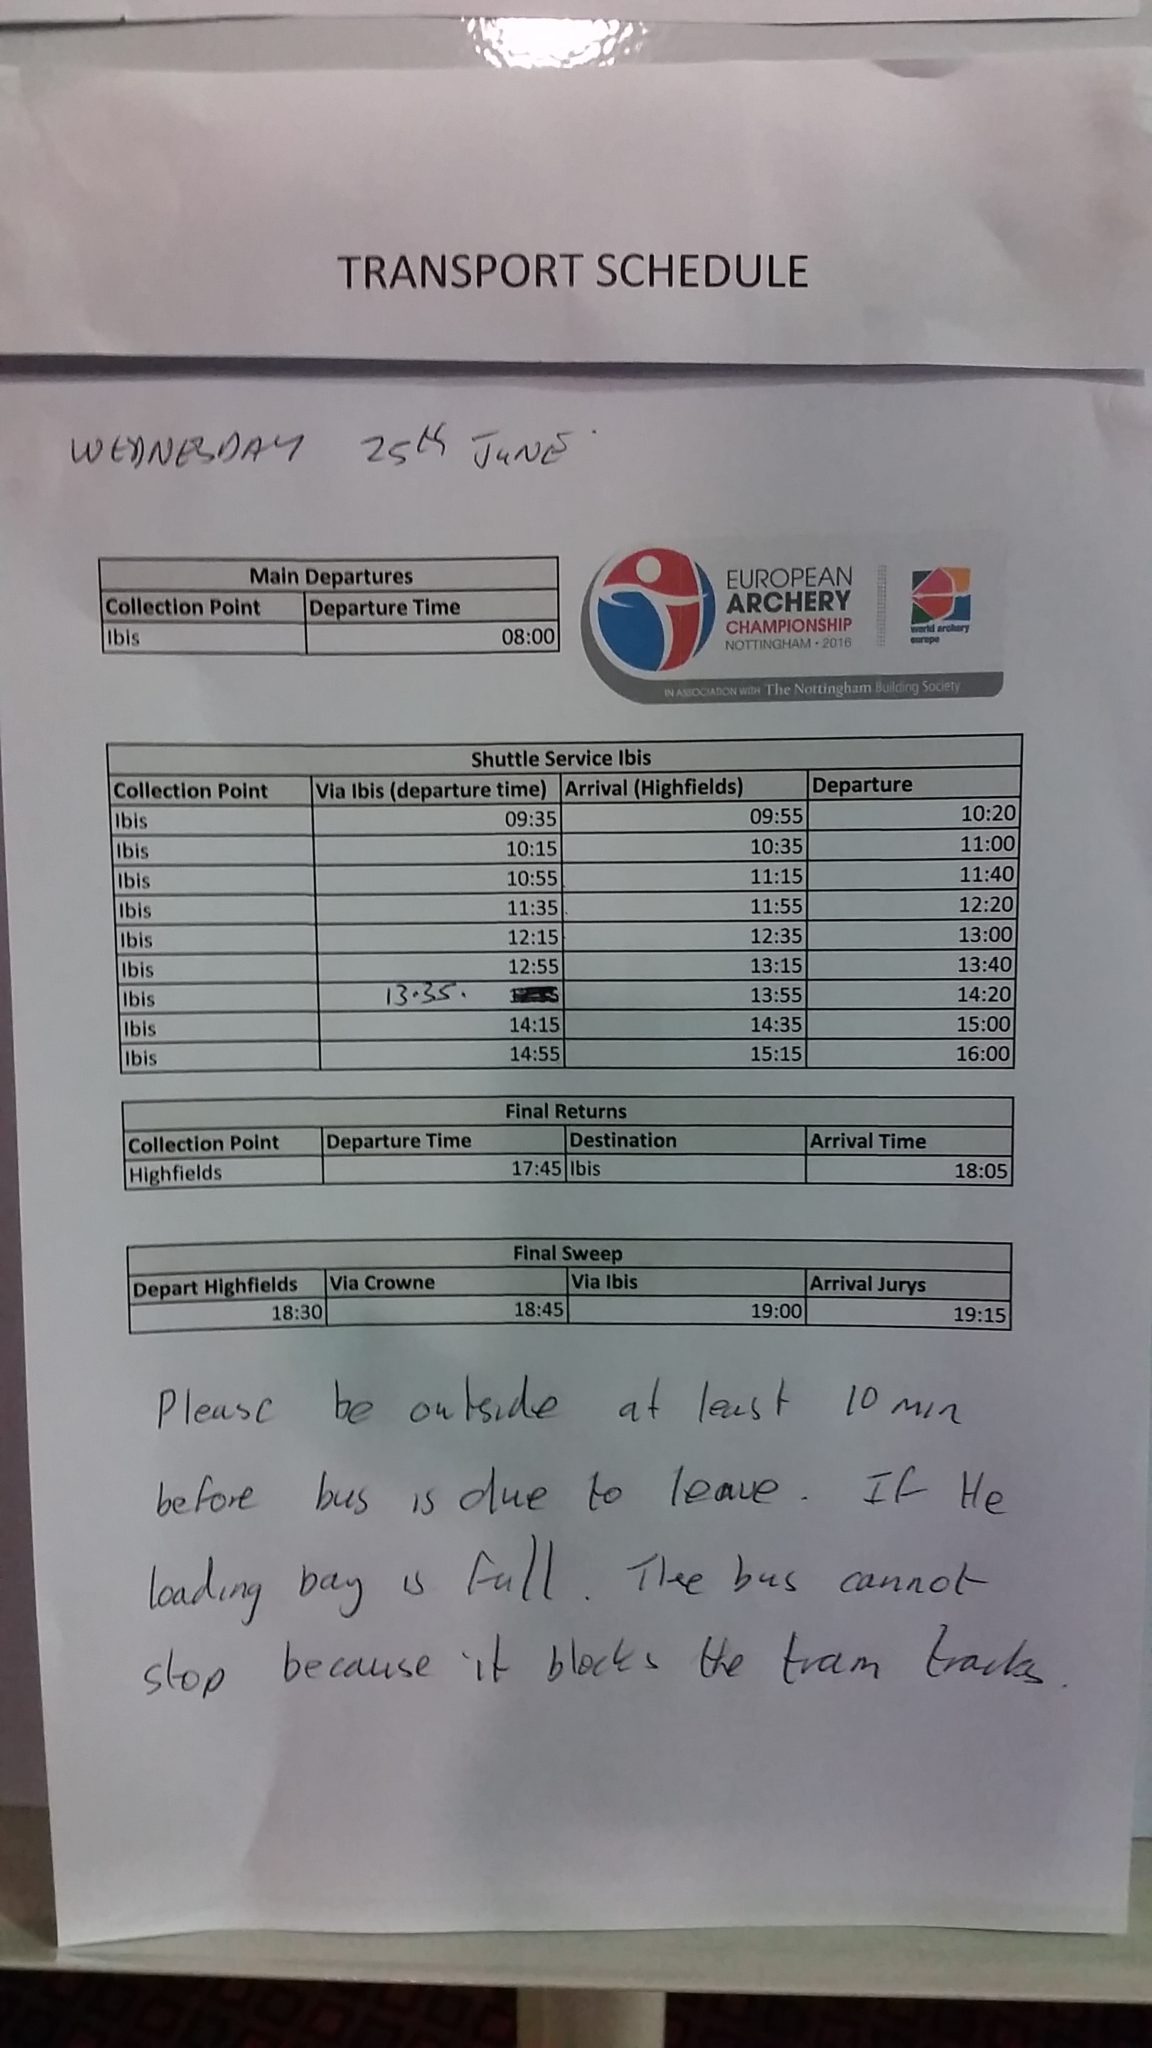 TRANSPORT SCHEDULE
WEDNESDAY 25th JUNE
Main Departures
Collection Point Departure Time
Ibis 08:00
EUROPEAN
ARCHERY
CHAMPIONSHIP
NOTTINGHAM • 2016
world archery
europe
IN ASSOCIATION WITH The Nottingham Building Society
Shuttle Service Ibis
Collection Point Via Ibis (departure time) Arrival (Highfields) Departure
Ibis 09:35 09:55 10:20
Ibis 10:15 10:35 11:00
Ibis 10:55 11:15 11:40
Ibis 11:35 11:55 12:20
Ibis 12:15 12:35 13:00
Ibis 12:55 13:15 13:40
Ibis 13.35. 13:55 14:20
Ibis 14:15 14:35 15:00
Ibis 14:55 15:15 16:00
Final Returns
Collection Point Departure Time Destination Arrival Time
Highfields 17:45 Ibis 18:05
Final Sweep
Depart Highfields Via Crowne Via Ibis Arrival Jurys
18:30 18:45 19:00 19:15
Please be outside at least 10 min
before bus is due to leave. If the
loading bay is full. The bus cannot
stop because it blocks the tram tracks.